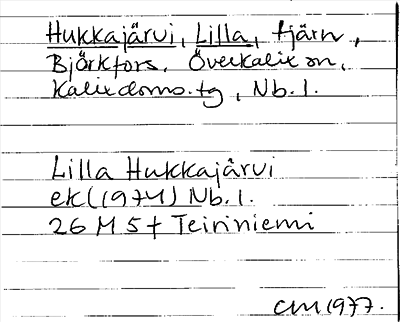 Hukkajärvi, Lilla, tjärn,
Björkfors, Överkalix sn,
Kalix doms.tg, Nb.l.
Lilla Hukkajärvi
ek (1974) Nb.l.
26 M 5f Teiriniemi
CM 1977.